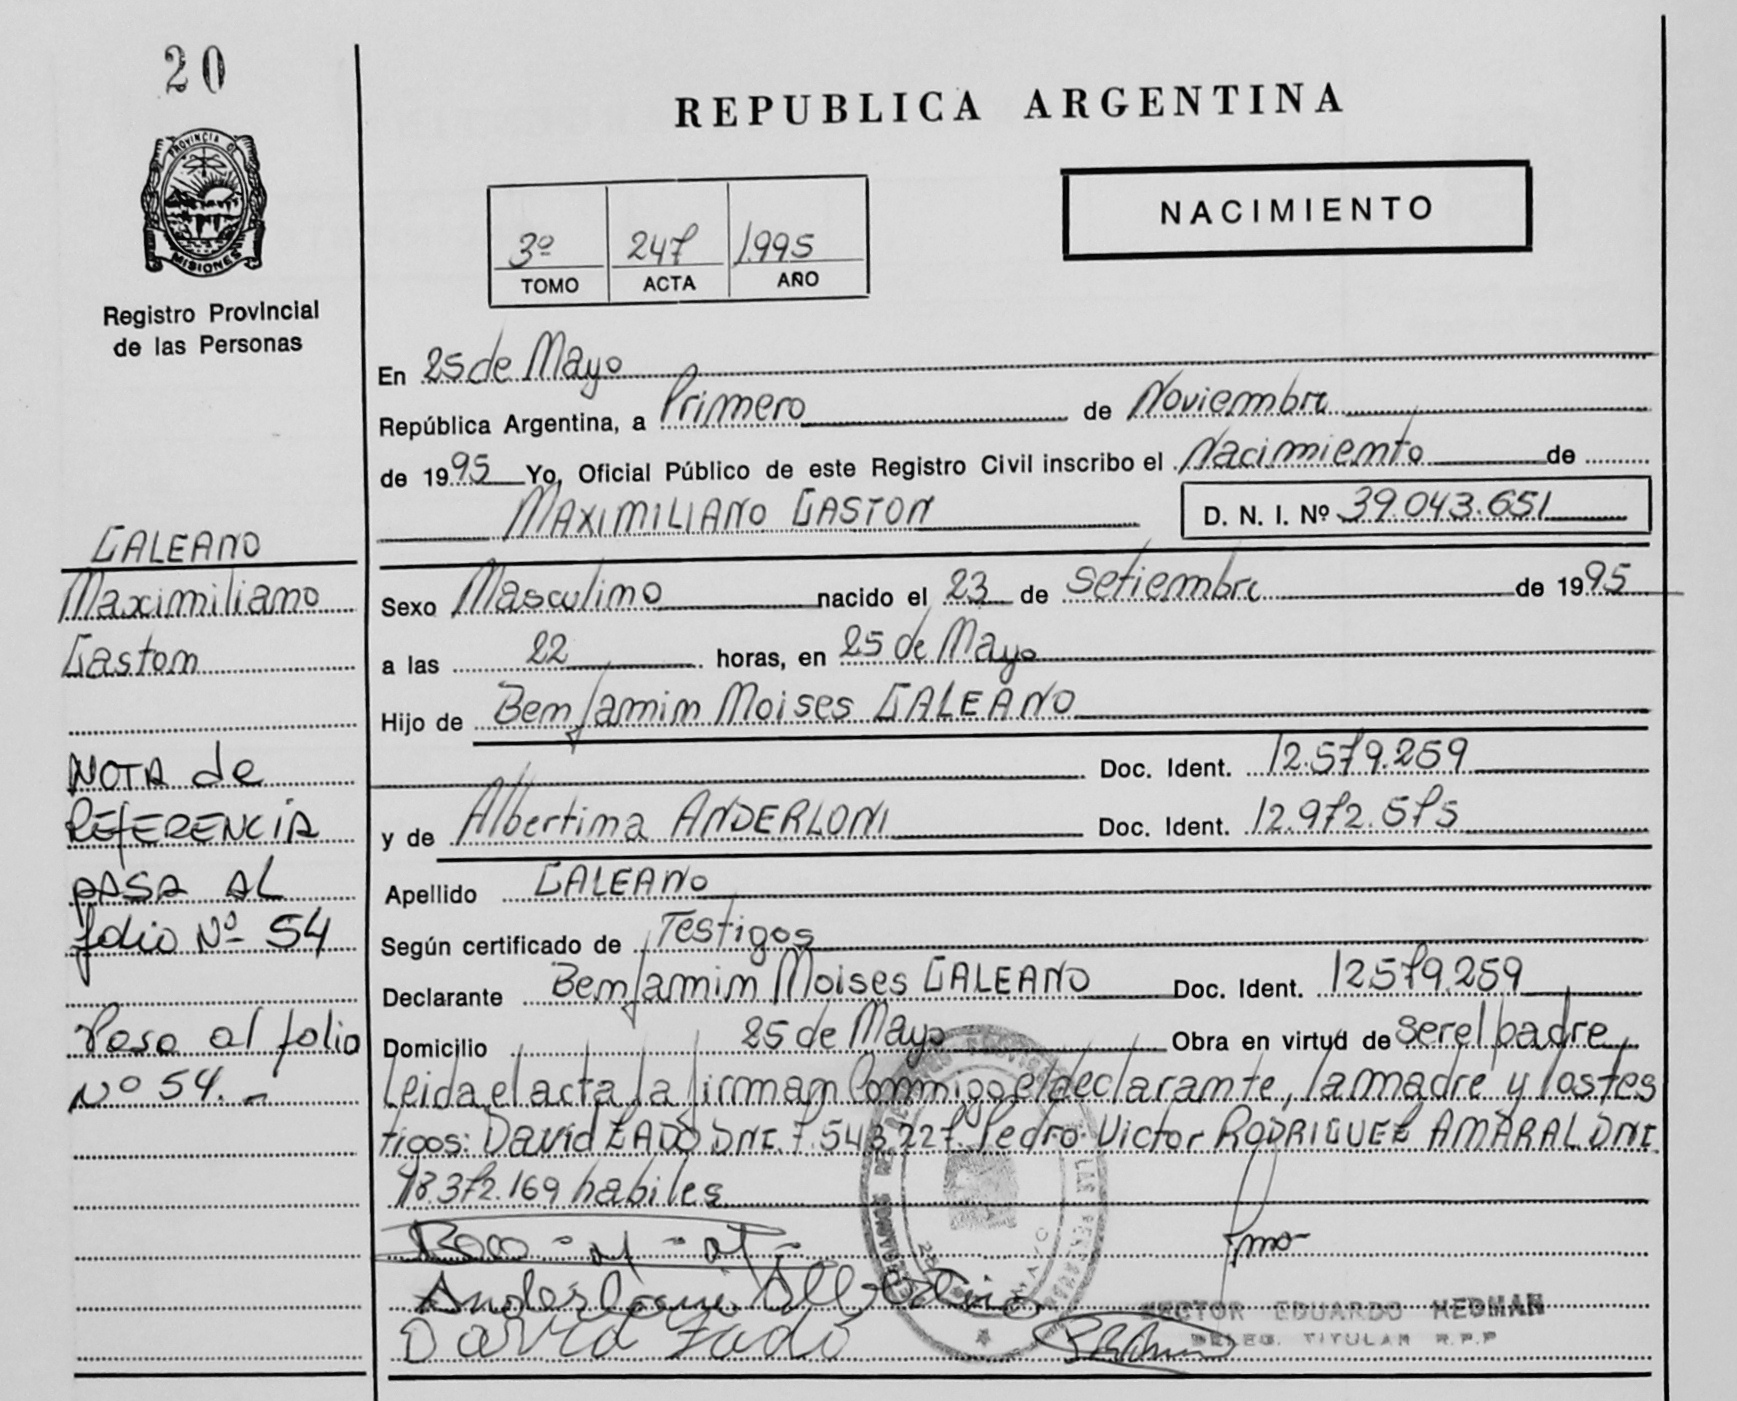 20
PROVINCIA DE
MISIONES
Registro Provincial
de las Personas
REPUBLICA ARGENTINA
NACIMIENTO
3º 247 1.995
TOMO ACTA AÑO
En 25 de Mayo
República Argentina, a Primero de Noviembre
de 1995 Yo, Oficial Público de este Registro Civil inscribo el Nacimiento de
MAXIMILIANO GASTON D. N. I. Nº 39.043.651
Sexo Masculino nacido el 23 de Setiembre de 1995
a las 22 horas, en 25 de Mayo
Hijo de Benjamin Moises GALEANO
Doc. Ident. 12.579.259
y de Albertina ANDERLONI Doc. Ident. 12.972.575
Apellido GALEANO
Según certificado de Testigos
Declarante Benjamin Moises GALEANO Doc. Ident. 12.579.259
Domicilio 25 de Mayo Obra en virtud de ser el padre
Leida el acta la firman Conmigo el declarante, la madre y los tes
tigos: David ZADO DNI. 7.543.227. Pedro Victor RODRIGUEZ AMARAL DNI.
18.372.169 habiles
David Zado
HECTOR EDUARDO HEDMAN
DELEG. TITULAR R.P.P
GALEANO
Maximiliano
Gaston
NOTA de
REfERENCIA
PASA AL
folio Nº 54
Pasa al folio
Nº 54.-